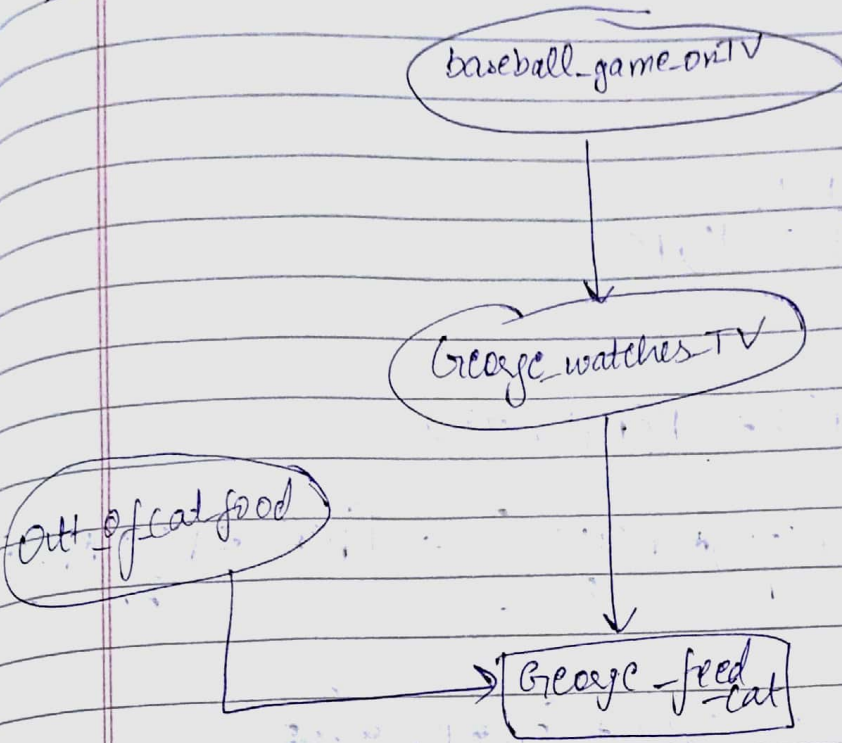 baseball_game_onTV
George_watches_TV
Out_of_cat_food
George_feed
_cat